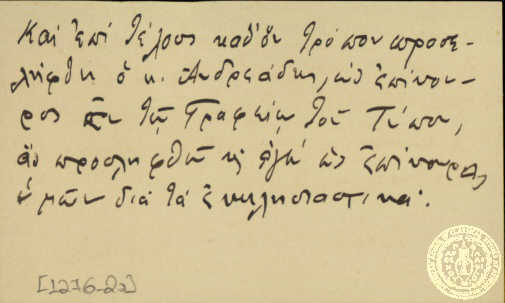 Καὶ ἐπὶ τέλους καθ' ὃν τρόπον προσε-
λήφθη ὁ κ. Ἀνδρεάδης, ὡς ἐπίκου-
ρος ἐν τῷ Γραφείῳ τοῦ Τύπου,
ἂς προσληφθῶ κ' ἐγὼ ὡς ἐπίκουρος
ὑμῶν διὰ τὰ ἐκκλησιαστικά.
[1276-22]